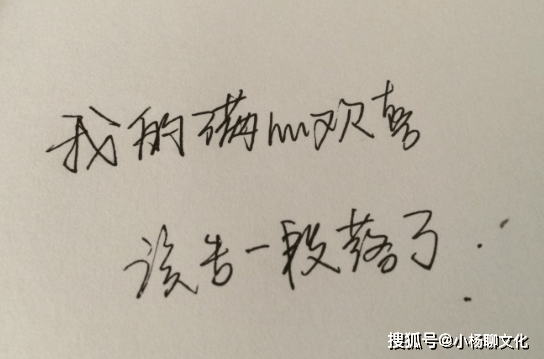 我的满心欢喜
该告一段落了..
搜狐号@小杨聊文化